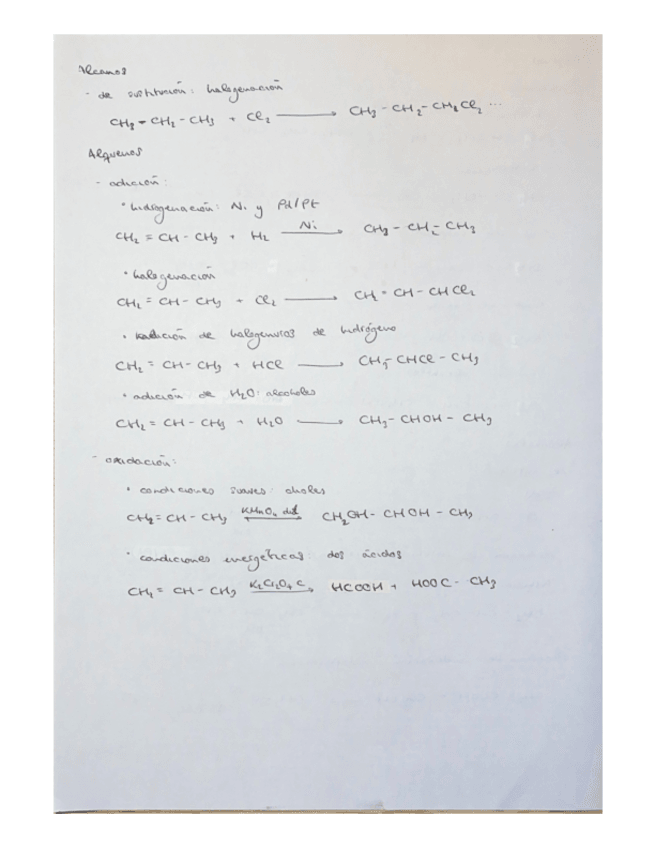 Alcanos
- de sustitución: halogenación
CH3 - CH2 - CH3 + Cl2 → CH3 - CH2 - CH2Cl2 ...
Alquenos
- adición:
• hidrogenación: Ni y Pd/Pt
CH2 = CH - CH3 + H2 Ni → CH3 - CH2 - CH3
• halogenación
CH2 = CH - CH3 + Cl2 → CH2 - CH - CHCl2
• adición de halogenuros de hidrógeno
CH2 = CH - CH3 + HCl → CH3 - CHCl - CH3
• adición de H2O: alcoholes
CH2 = CH - CH3 + H2O → CH3 - CHOH - CH3
- oxidación:
• condiciones suaves: dioles
CH2 = CH - CH3 KMnO4 dil → CH2OH - CHOH - CH3
• condiciones energéticas: dos ácidos
CH2 = CH - CH3 K2Cr2O4 C → HCOOH + HOOC - CH3